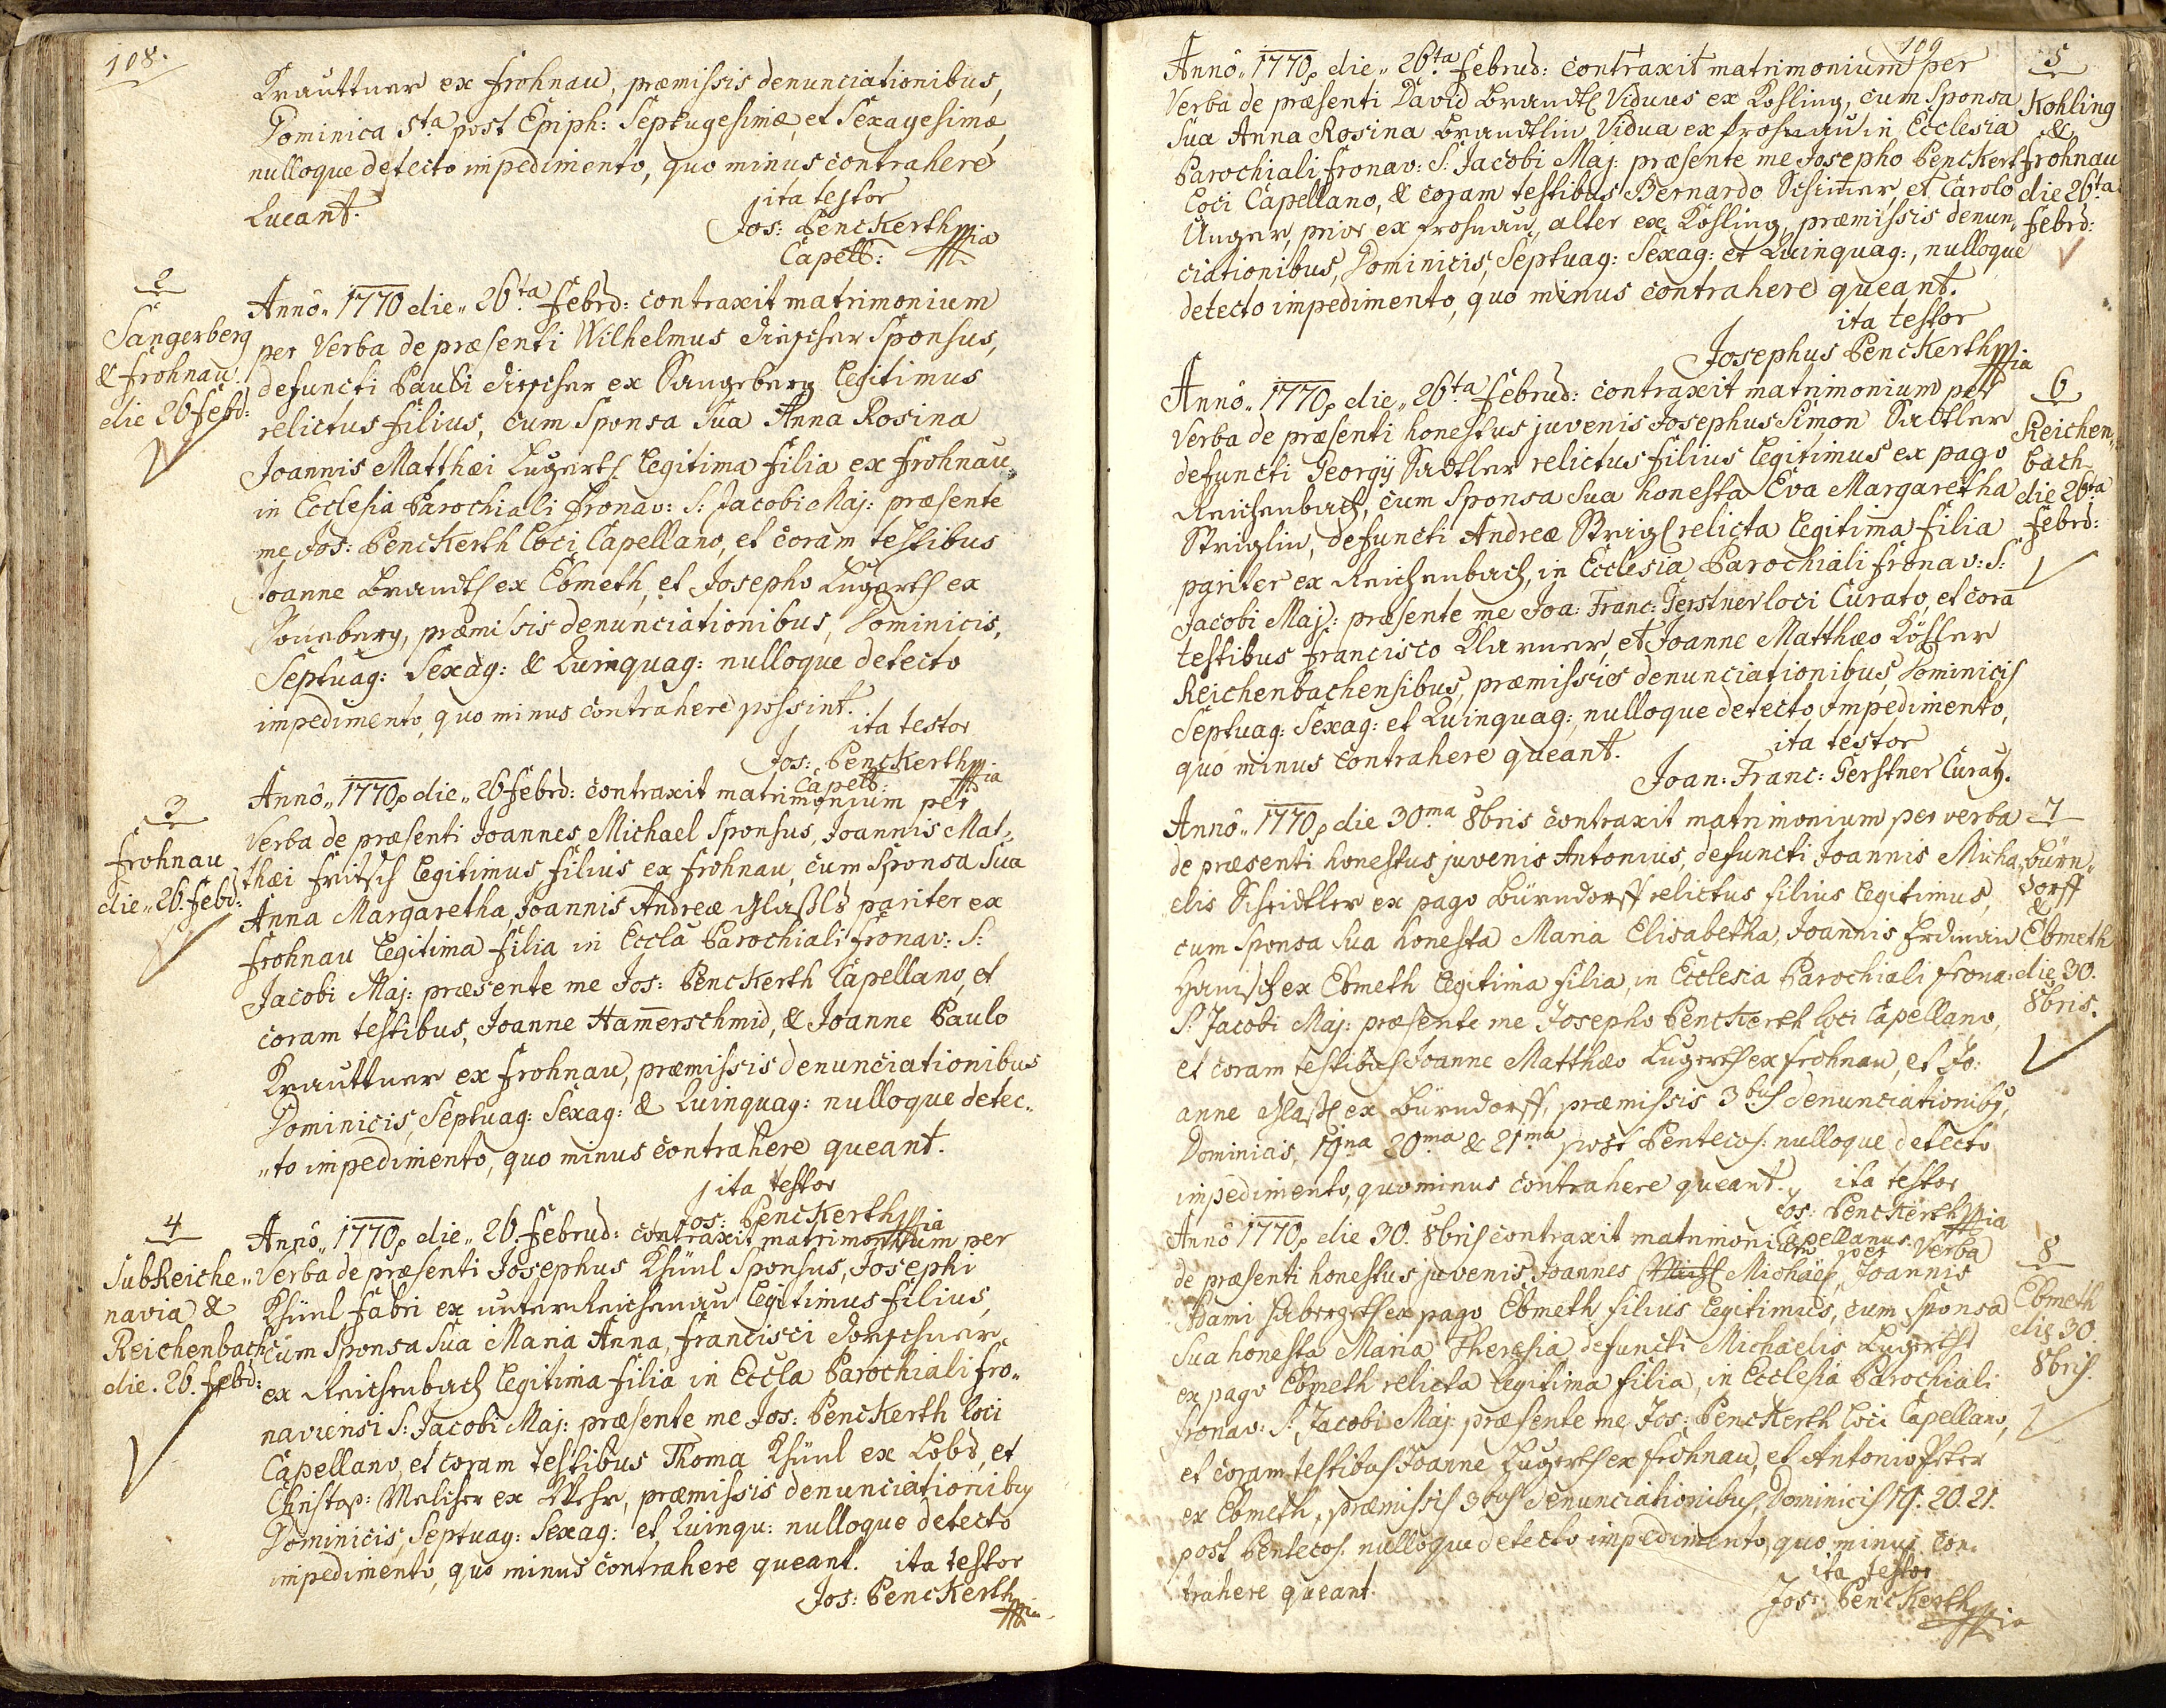 108.
Krauttner ex Frohnau, præmissis denunciationibus,
Dominica 5ta post Epiph: Septugesimæ, et Sexagesimæ,
nulloque detecto impedimento, quo minus contrahere
queant.
ita testor
Jos: Penckerth mpia
Capell:
2
Sangerberg
& Frohnau
die 26 Febrd:
Annô 1770 die 26ta Febrd: contraxit matrimonium
per Verba de præsenti Wilhelmus Sponsus,
defuncti Pauli ex Sangerberg legitimus
relictus filius, cum Sponsa sua Anna Rosina
Joannis Matthæi Lugerts legitima filia ex Frohnau
in Ecclesia Parochiali Fronav: S: Jacobi Maj: præsente
me Jos: Penckerth loci Capellano, et coram testibus
Joanne Brandtl ex Ebmeth, et Josepho Lugertl ex
præmissis denunciationibus, Dominicis,
Septuag: Sexag: & Quinquag: nulloque detecto
impedimento, quo minus contrahere possint.
ita testor
Jos: Penckerth mpia
Capell:
3
Frohnau
die 26. Febd:
Annô 1770 die 26 Febrd: contraxit matrimonium per
Verba de præsenti Joannes Michael Sponsus, Joannis Mat-
thæi Fritsch legitimus filius ex Frohnau, cum Sponsa sua
Anna Margaretha Joannis Andreæ pariter ex
Frohnau legitima filia in Eccla Parochiali Fronav: S:
Jacobi Maj: præsente me Jos: Penckerth Capellano, et
coram testibus, Joanne Hamerschmid, & Joanne Paulo
Krauttner ex Frohnau, præmissis denunciationibus
Dominicis, Septuag: Sexag: & Quinquag: nulloque detec-
to impedimento, quo minus contrahere queant.
ita testor
Jos: Penckerth mpia
4
SubReiche-
navia &
Reichenbach
die. 26. Febd:
Annô 1770 die 26. Februd: contraxit matrimonium per
Verba de præsenti Josephus Khünl Sponsus, Josephi
Khünl Fabri ex unterReichenau legitimus filius,
cum Sponsa sua Maria Anna, Francisci
ex Reichenbach legitima filia in Eccla Parochiali Fro-
naviensi S: Jacobi Maj: præsente me Jos: Penckerth loci
Capellano, et coram testibus Thoma Khünl ex Lobs, et
Christop: Melcher ex præmissis denunciationibus
Dominicis, Septuag: Sexag: et Quinqu: nulloque detecto
impedimento, quo minus contrahere queant. ita testor
Jos: Penckerth mpia
109
Annô 1770 die 26ta Februd: contraxit matrimonium per
Verba de præsenti David Brandtl Viduus ex Kohling, cum Sponsa
sua Anna Rosina Brandtlin Vidua ex Frohnau in Ecclesia
Parochiali Fronav: S: Jacobi Maj: præsente me Josepho Penckert
loci Capellano, & coram testibus Bernardo et Carolo
Unger, prior ex Frohnau, alter ex Kohling, præmissis denun-
ciationibus, Dominicis, Septuag: Sexag: et Quinquag:, nulloque
detecto impedimento, quo minus contrahere queant.
ita testor
Josephus Penckerth mpia
5
Kohling
&
Frohnau
die 26ta
Febrd:
Annô 1770 die 26ta Februd: contraxit matrimonium per
Verba de præsenti honestus juvenis Josephus Simon Sadtler
defuncti Georgij Sadtler relictus filius legitimus ex pago
Reichenbach, cum Sponsa sua honesta Eva Margaretha
Striglin, defuncti Andreæ Strigl relicta legitima filia
pariter ex Reichenbach, in Ecclesia Parochiali Fronav: S:
Jacobi Maj: præsente me Joa: Franc: Gerstner loci Curato, et corã
testibus Francisco Klarner, et Joanne Matthæo Köhler
Reichenbachensibus, præmissis denunciationibus, Dominicis
Septuag: Sexag: et Quinquag: nulloque detecto Impedimento,
quo minus contrahere queant.
ita testor
Joan: Franc: Gerstner Curatg.
6
Reichen-
bach
die 26ta
Febrd:
Annô 1770 die 30ma 8bris contraxit matrimonium per verba
de præsenti honestus juvenis Antonius, defuncti Joannis Micha-
elis Scheidtler ex pago Bürndorff relictus filius legitimus,
cum Sponsa sua honesta Maria Elisabetha, Joannis
Hanisch ex Ebmeth legitima filia, in Ecclesia Parochiali Frona:
S: Jacobi Maj: præsente me Josepho Penckerth loci Capellano,
et coram testibus Joanne Matthæo Lugertl ex Frohnau, et Jo-
anne ex Bürndorff, præmissis 3bus denunciationibg,
Dominicis, 19na 20ma & 21ma post Pentecos: nulloque detecto
impedimento, quominus contrahere queant. ita testor
Jos: Penckerth mpia
Capellanus.
7
Bürn-
dorff
&
Ebmeth
die 30.
8bris.
Annô 1770 die 30. 8bris contraxit matrimonium per Verba
de præsenti honestus juvenis Joannes Michael, Joannis
Adami ex pago Ebmeth filius legitimus, cum Sponsa
sua honesta Maria Theresia defuncti Michaelis Lugertl
ex pago Ebmeth relicta legitima filia, in Ecclesia Parochiali
Fronav: S: Jacobi Maj: præsente me Jos: Penckerth loci Capellano,
et coram testibus Joanne Lugertl ex Frohnau, et Antonio Peter
ex Ebmeth, præmissis 3bus denunciationibus, Dominicis 19. 20. 21.
post Pentecos: nulloque detecto impedimento, quo minus con-
trahere queant.
ita testor
Jos: Penckerth mpia
8
Ebmeth
die 30.
8bris.